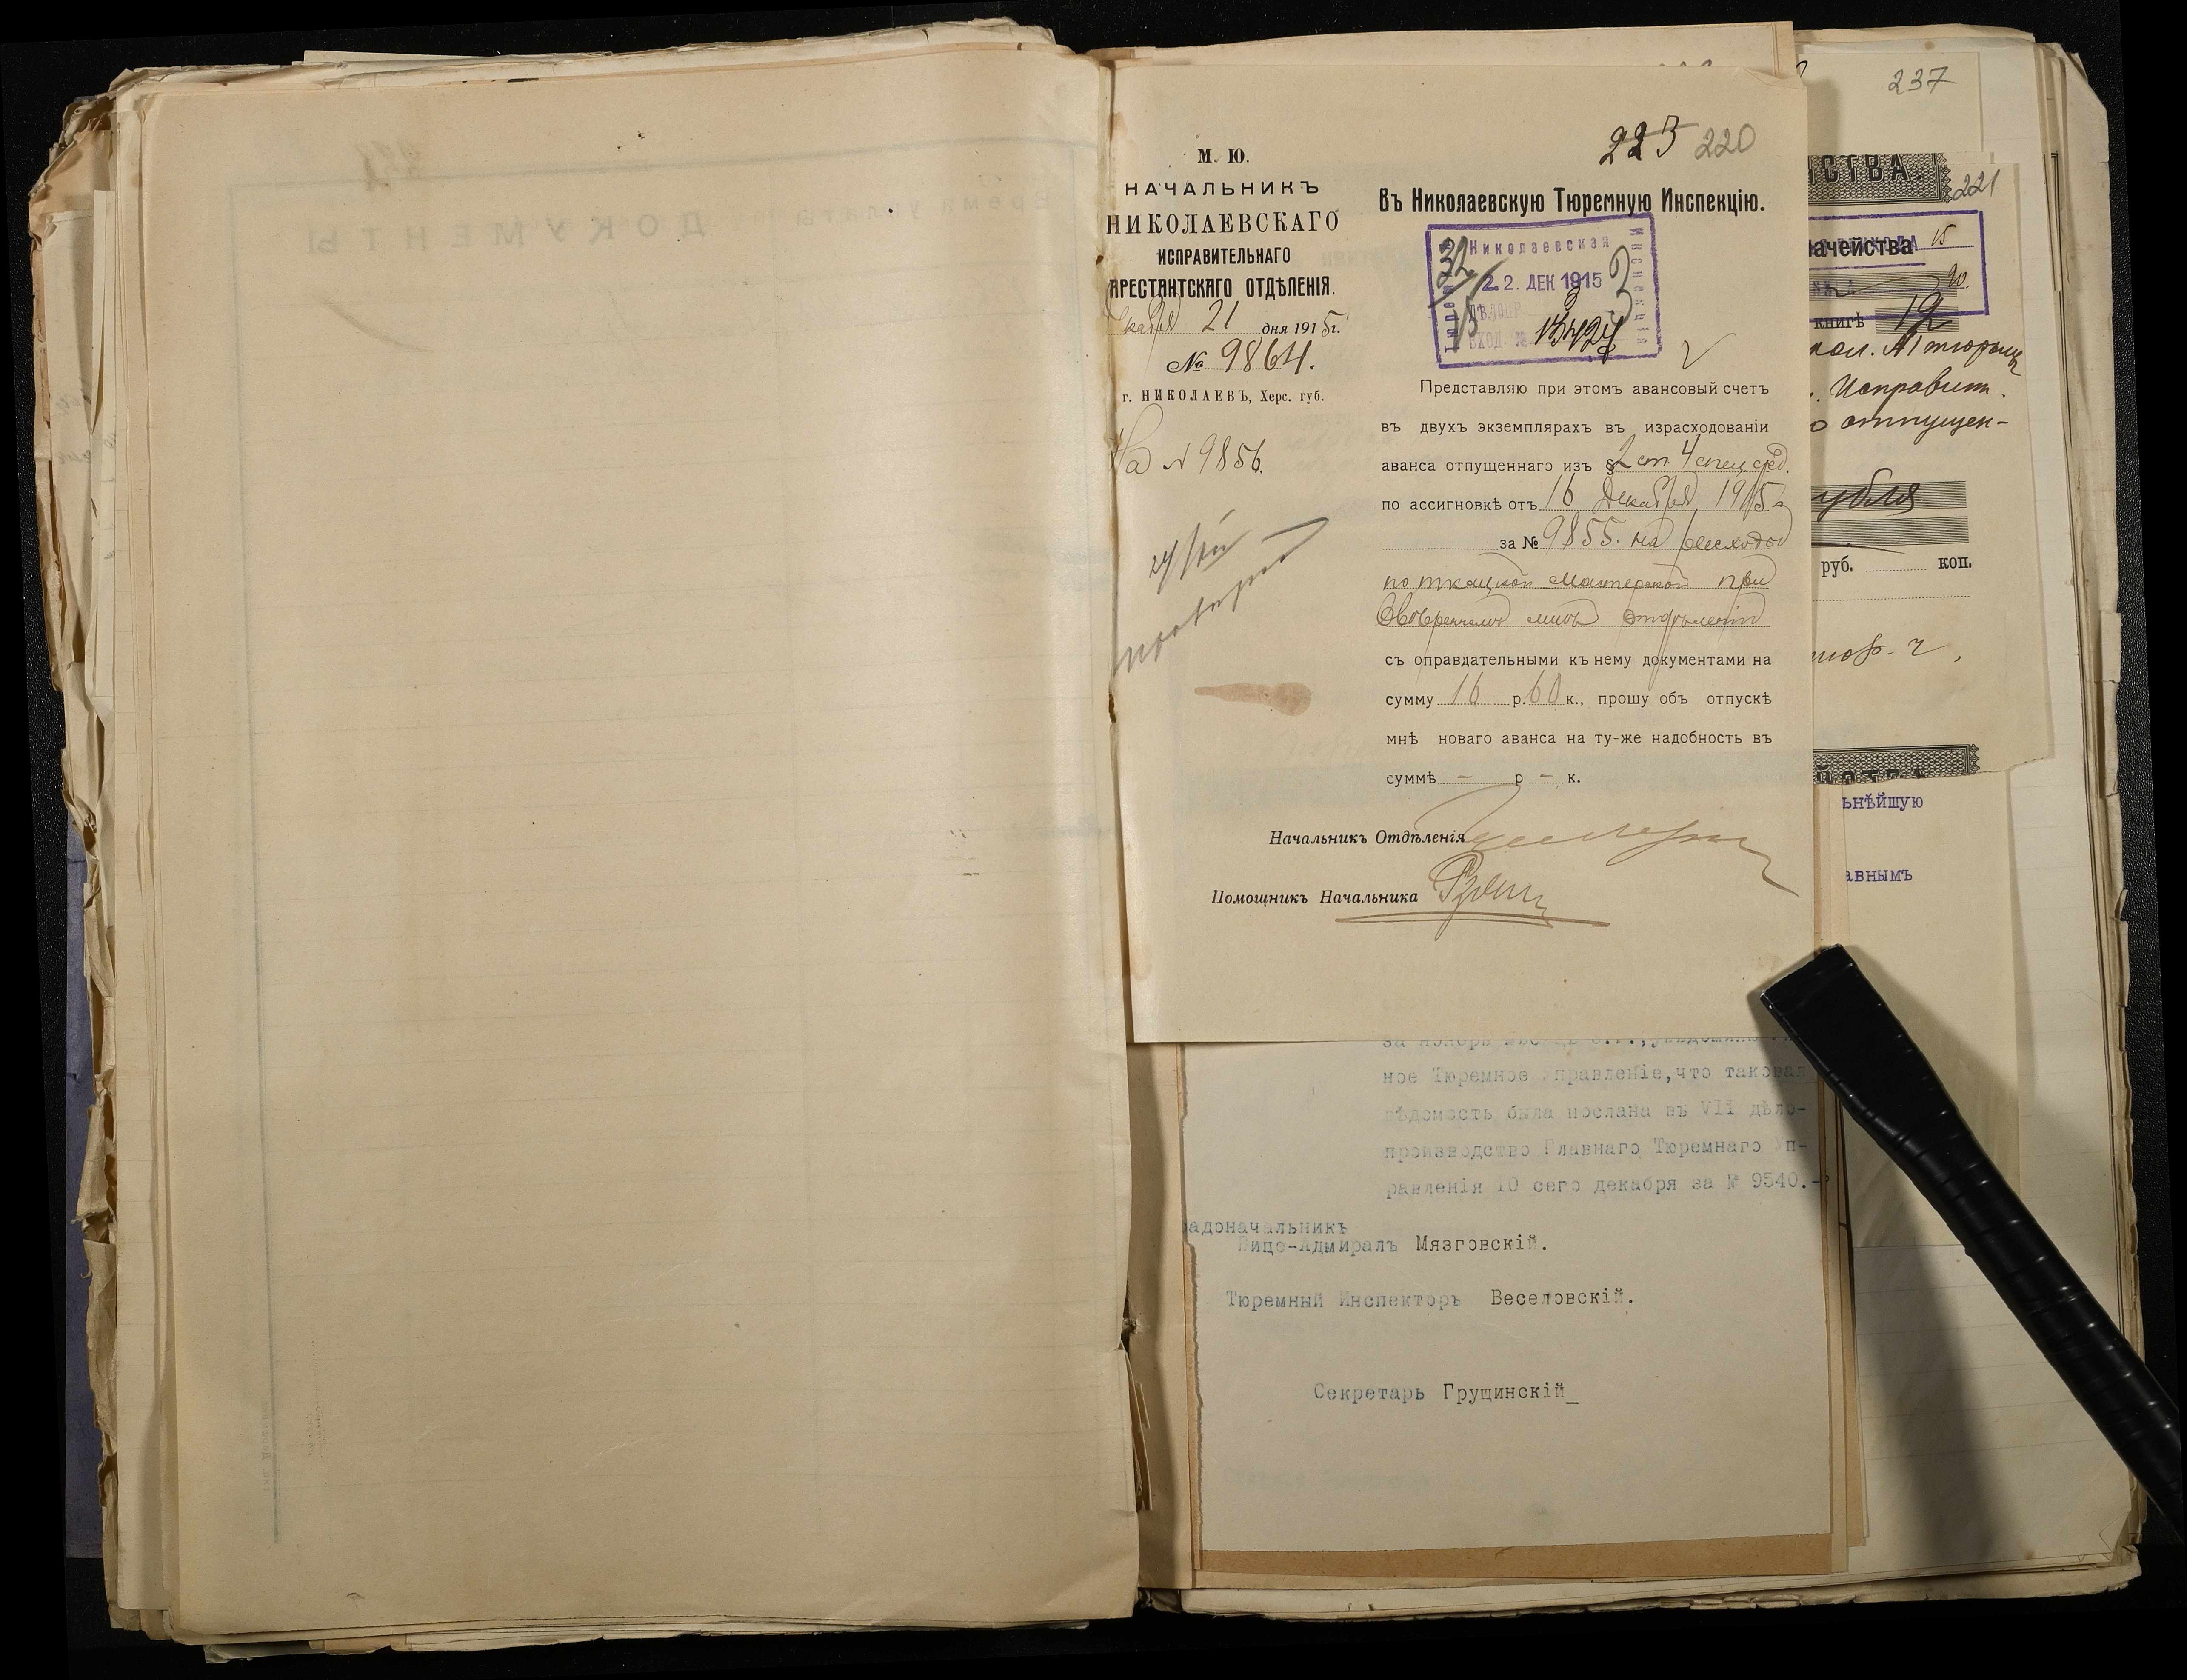 223 220
М. Ю.
НАЧАЛЬНИКЪ
НИКОЛАЕВСКАГО
ИСПРАВИТЕЛЬНАГО
АРЕСТАНТСКАГО ОТДѢЛЕНІЯ.
кабря 21 дня 1915 г.
№ 9864.
г. НИКОЛАЕВЪ, Херс. губ.
На № 9856.
Въ Николаевскую Тюремную Инспекцію.
Николаевская
Тюремная
Инспекція
22. ДЕК 1915
ВХОД. №
Представляю при этомъ авансовый счетъ
въ двухъ экземплярахъ въ израсходованіи
аванса отпущеннаго изъ § 2 ст. 4 спец. сред.
по ассигновкѣ отъ 16 Декабря 1915 г.
за № 9855. на расходы
по ткацкой мастерской при
ввѣренномъ мнѣ отдѣленіи
съ оправдательными къ нему документами на
сумму 16 р. 60 к., прошу объ отпускѣ
мнѣ новаго аванса на ту-же надобность въ
суммѣ — р — к.
Начальникъ Отдѣленія
Помощникъ Начальника
ное Тюремное Управленіе, что таковая
вѣдомость была послана въ VII дѣло-
производство Главнаго Тюремнаго Уп-
равленія 10 сего декабря за № 9540.-
радоначальникъ
Вице-Адмиралъ Мязговскій.
Тюремный Инспекторъ Веселовскій.
Секретарь Грущинскій_
237
СТВА.
221
ачейства
15
книгѣ 12
Исправит.
отпущен-
убля
руб. коп.
ьнѣйшую
авнымъ
ДОКУМЕНТЫ